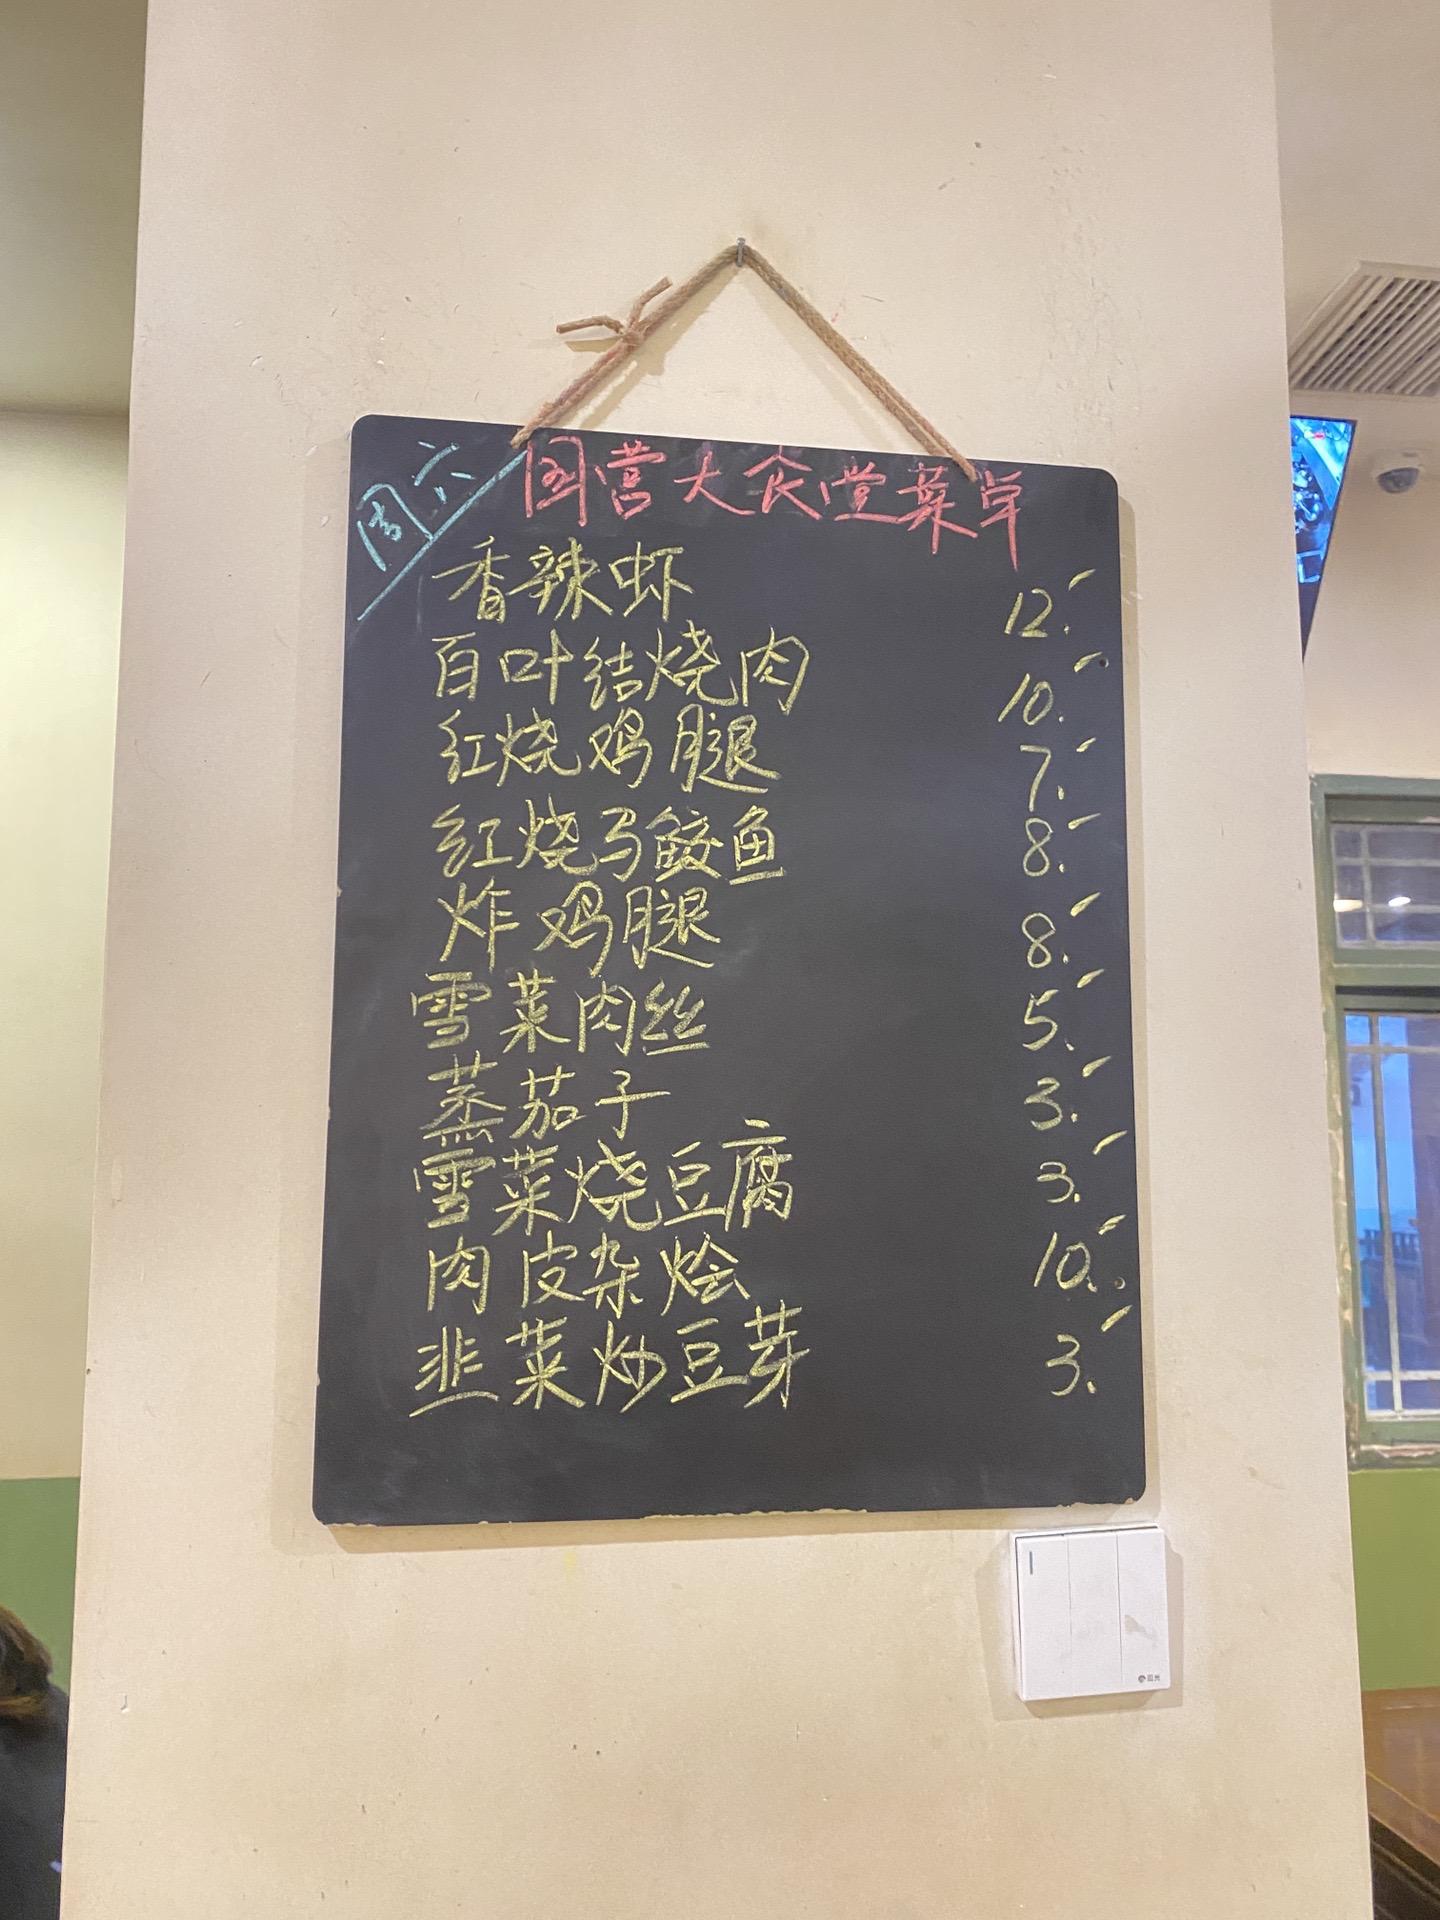 周六
国营大食堂菜单
香辣虾 12.
百叶结烧肉 10.
红烧鸡腿 7.
红烧马鲛鱼 8.
炸鸡腿 8.
雪菜肉丝 5.
蒸茄子 3.
雪菜烧豆腐 3.
肉皮杂烩 10.
韭菜炒豆芽 3.